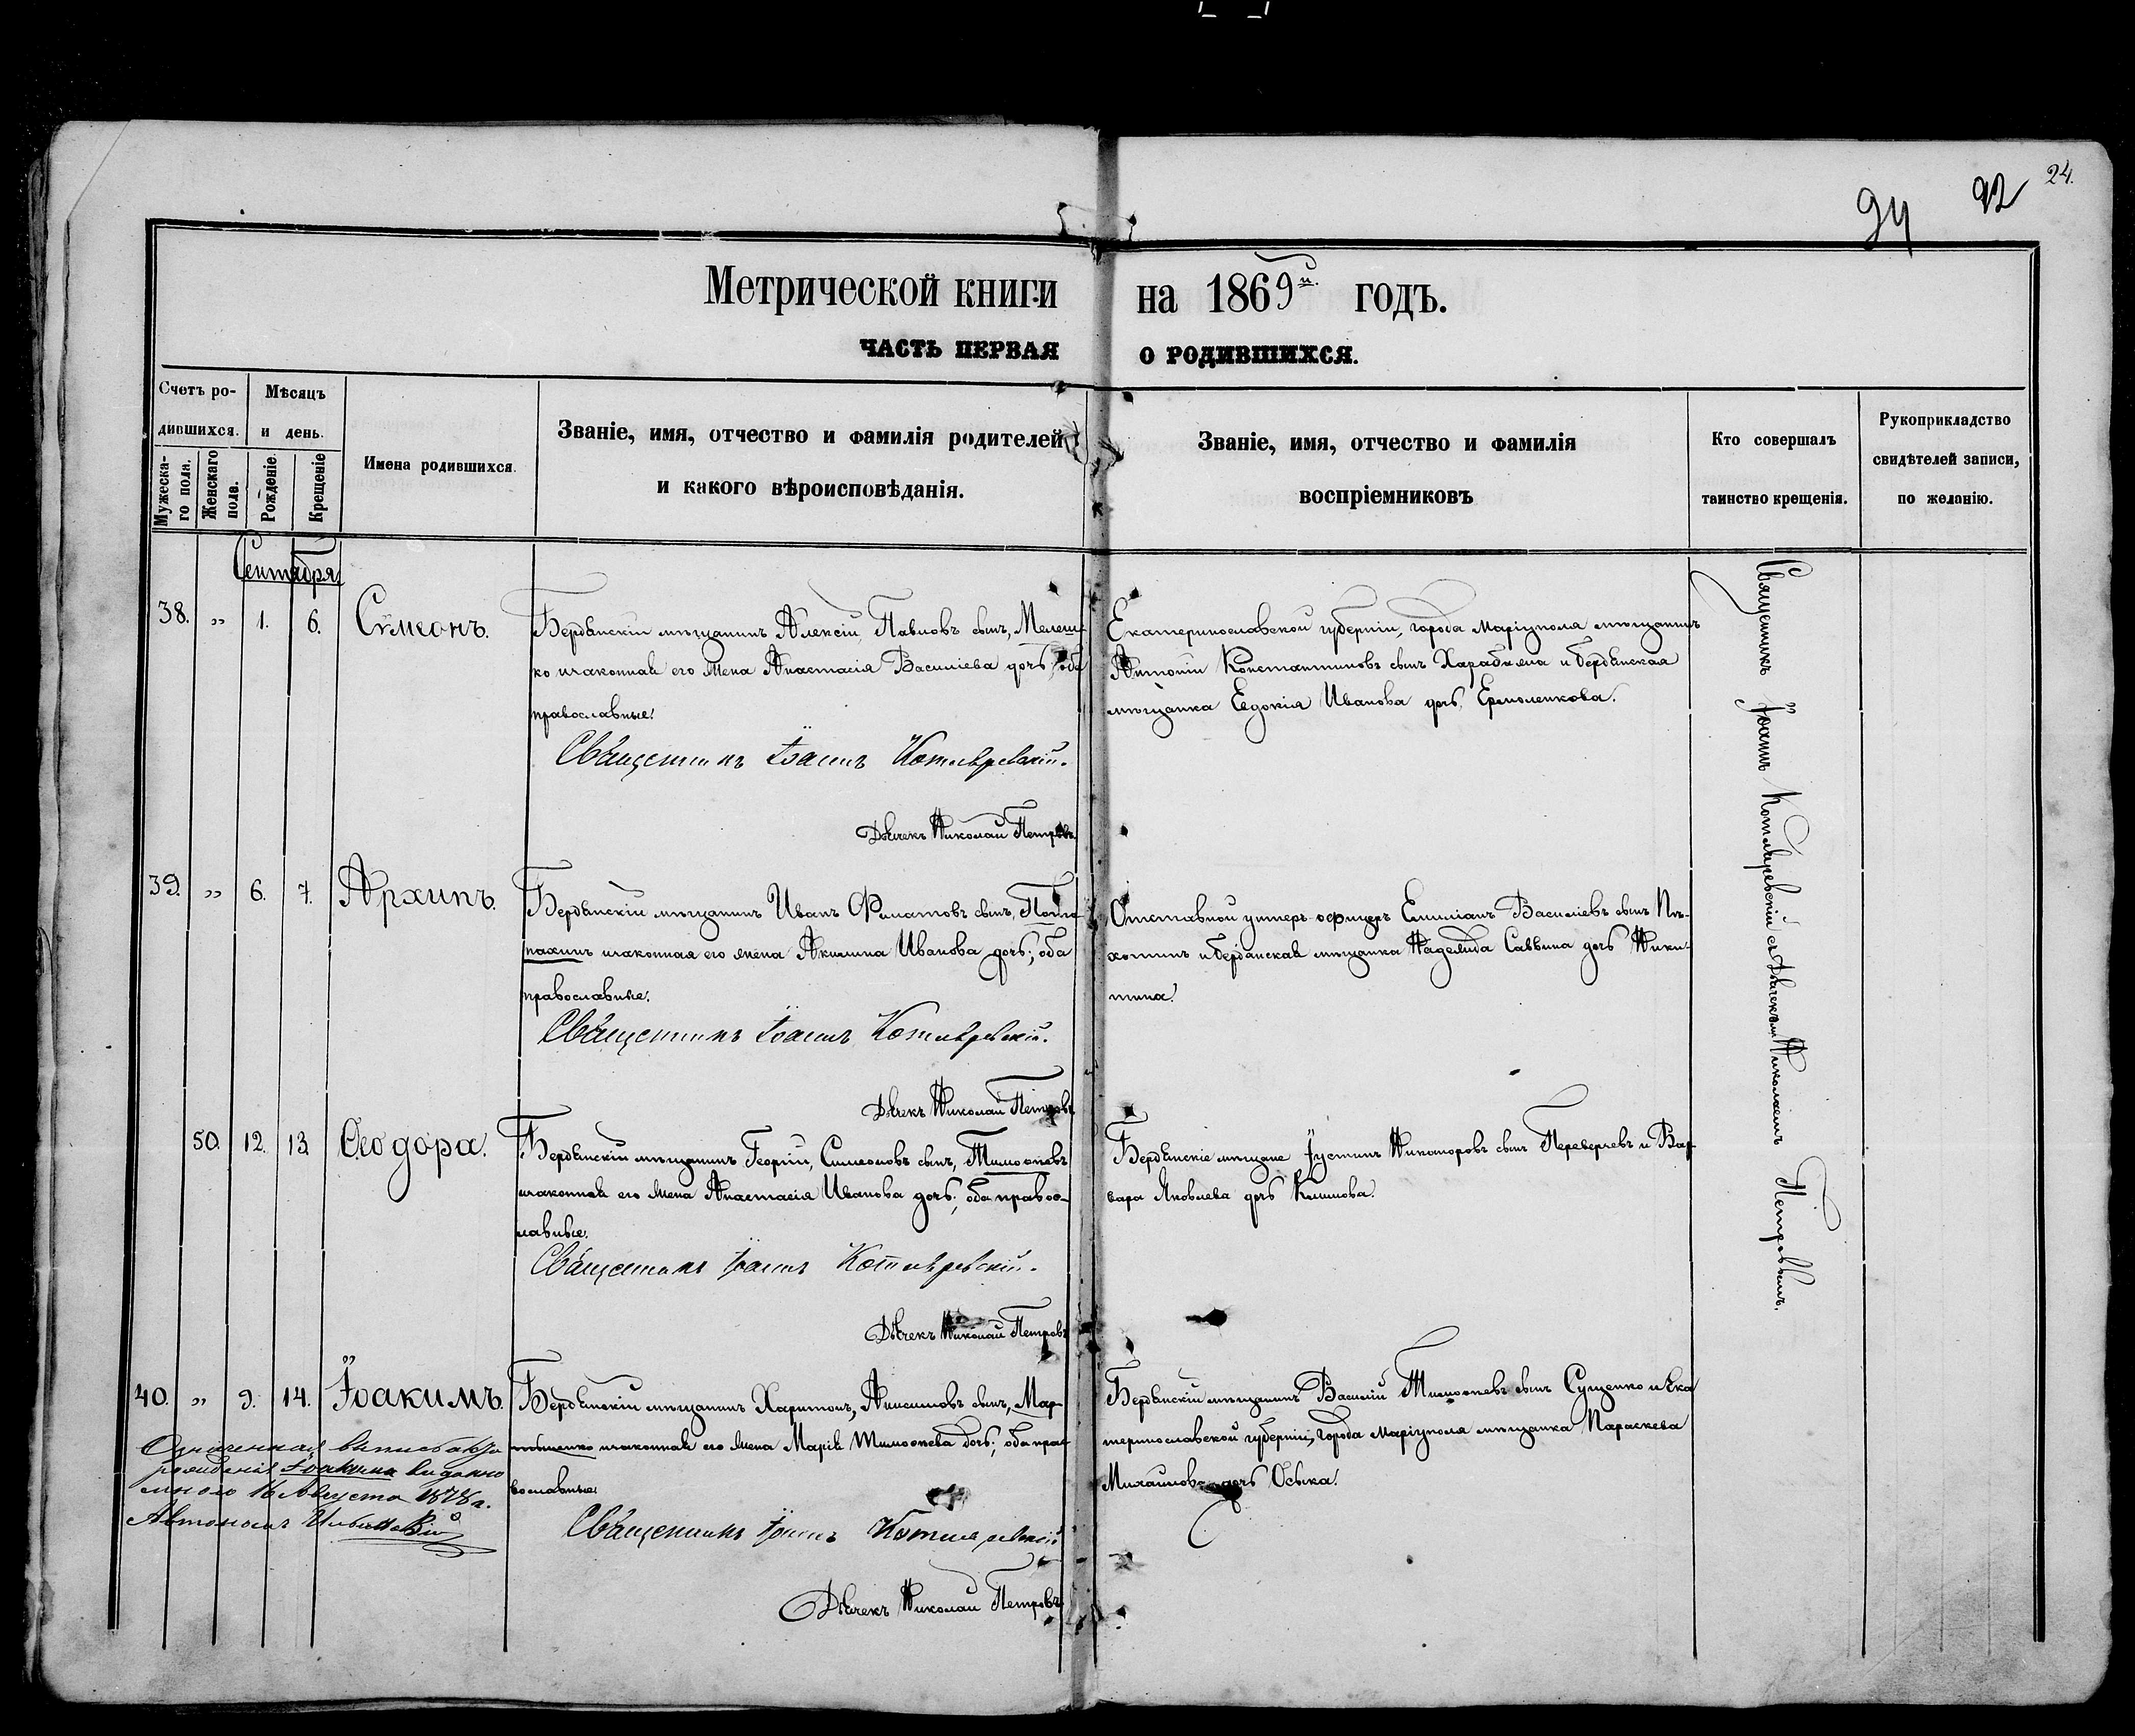 24.
92
94
Метрической книги на 1869й годъ.
ЧАСТЬ ПЕРВАЯ О РОДИВШИХСЯ.
Счетъ ро-
дившихся.
Мѣсяцъ
и день.
Мужеска-
го пола.
Женскаго
пола.
Рожденіе.
Крещеніе
Имена родившихся.
Званіе, имя, отчество и фамилія родителей
и какого вѣроисповѣданія.
Званіе, имя, отчество и фамилія
воспріемниковъ
Кто совершалъ
таинство крещенія.
Рукоприкладство
свидѣтелей записи,
по желанію.
Сентября
38. „ 1. 6. Сѵмеонъ.
Бердянскій мѣщанинъ Алексій Павловъ сынъ, Мелеш-
ко и законная его жена Анастасія Василіева дочь; оба
православные.
Священникъ Іоаннъ Котляревскій.
Дьячекъ Николай Петровъ.
Екатеринославской губерніи, города Маріуполя мѣщанинъ
Антоній Константиновъ сынъ и бердянская
мѣщанка Евдокія Иванова дочь Ермоленкова.
39. „ 6. 7. Архипъ.
Бердянскій мѣщанинъ Иванъ Филатовъ сынъ,
и законная его жена Акилина Иванова дочь; оба
православные.
Священникъ Іоаннъ Котляревскій.
Дьячекъ Николай Петровъ.
Отставной унтеръ-офицеръ Емиліанъ Василіевъ сынъ Пѣ-
хотинъ и бердянская мѣщанка Надежда Саввина дочь Ники-
тина.
50. 12. 13. Ѳеодора.
Бердянскій мѣщанинъ Георгій, Симеоновъ сынъ, Тимоѳеевъ
и законная его жена Анастасія Иванова дочь; оба правос-
лавные.
Священникъ Іоаннъ Котляревскій.
Дьячекъ Николай Петровъ
Бердянскіе мѣщане Іустинъ Никаноровъ сынъ Переверзевъ и Вар-
вара Яковлева дочь Климова.
40. „ 9. 14. Іоакимъ.
Бердянскій мѣщанинъ Харитонъ, Анисимовъ сынъ, Мар-
тыненко и законная его жена Марія Тимоѳеева дочь; оба пра-
вославные.
Священникъ Іоаннъ Котляревскій
Дьячекъ Николай Петровъ
Бердянскій мѣщанинъ Василій Тимоѳеевъ сынъ Сущенко и Ека
теринославской губерніи, города Маріуполя мѣщанка Параскева
Михаилова дочь
рожденія Іоакима выдано
мною 16 Августа 1878 г.
Священникъ Іоаннъ Котляревскій съ дьячекомъ Николаемъ Петровымъ.